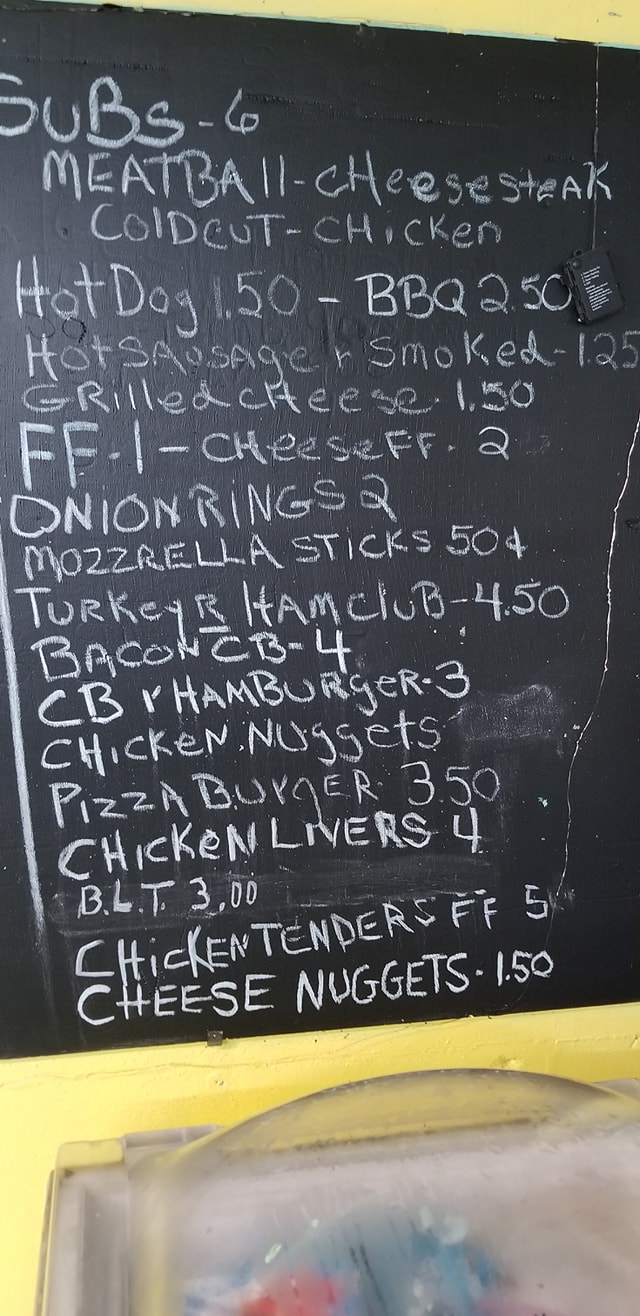 SUBS - 6
MEATBAll - CHeesesteAK
COlDCUT - CHicKen
HotDog 1.50 - BBQ 2.50
HotSAusage r SmoKed - 1.25
GRilled cHeese 1.50
FF - 1 - CHeese FF - 2
ONION RINGS 2
MOZZRELLA STICKS 50¢
TURKey R HAM cluB - 4.50
BACON CB - 4
CB r HAMBURgeR - 3
CHicKeN NUggets
PizzA BURgER 3.50
CHICKeN LIVERS 4
B.L.T. 3.00
CHicKENTENDERS FF 5
CHEESE NUGGETS - 1.50